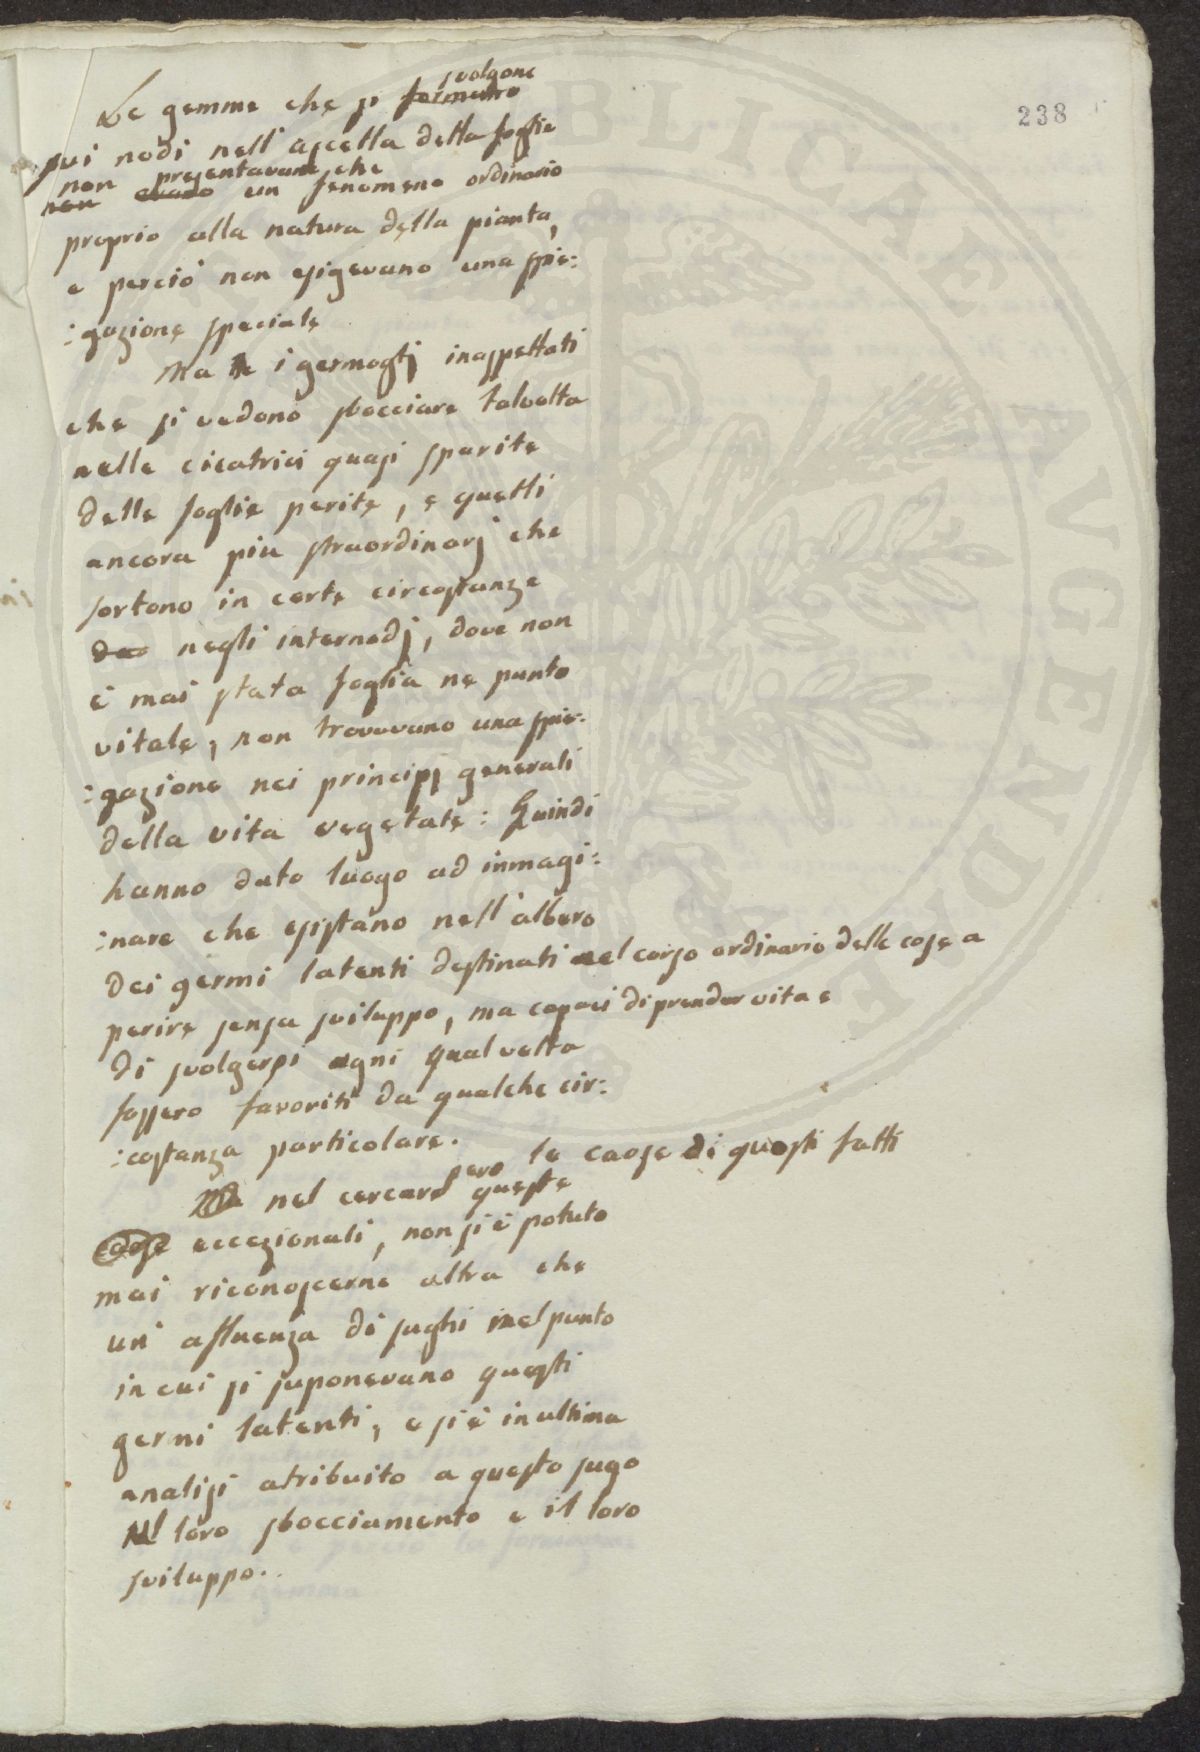 238
Le gemme che si formano svolgono
sui nodi nell'ascella della foglia
non presentavano che
non erano un fenomeno ordinario
proprio alla natura della pianta,
e perciò non esigevano una spie:
:gazione speciale
Ma i germoglj inaspettati
che si vedono sbocciare talvolta
nelle cicatrici quasi sparite
delle foglie perite, e quelli
ancora piu straordinarj che
sortono in certe circostanze
da negli internodj, dove non
è mai stata foglia ne punto
vitale, non trovavano una spie:
:gazione nei principj generali
della vita vegetale: Quindi
hanno dato luogo ad inmagi:
:nare che esistano nell'albero
dei germi latenti destinati nel corso ordinario delle cose a
perire senza sviluppo, ma capaci di prender vita e
di svolgersi ogni qual volta
fossero favoriti da qualche cir:
:costanza particolare.
Ma nel cercare però queste le cause di questi fatti
cause eccezionali, non si è potuto
mai riconoscerne altra che
un' afluenza di sughi nel punto
in cui si suponevano questi
germi latenti, e si è in ultima
analisi atribuito a questo sugo
il loro sbocciamento e il loro
sviluppo..